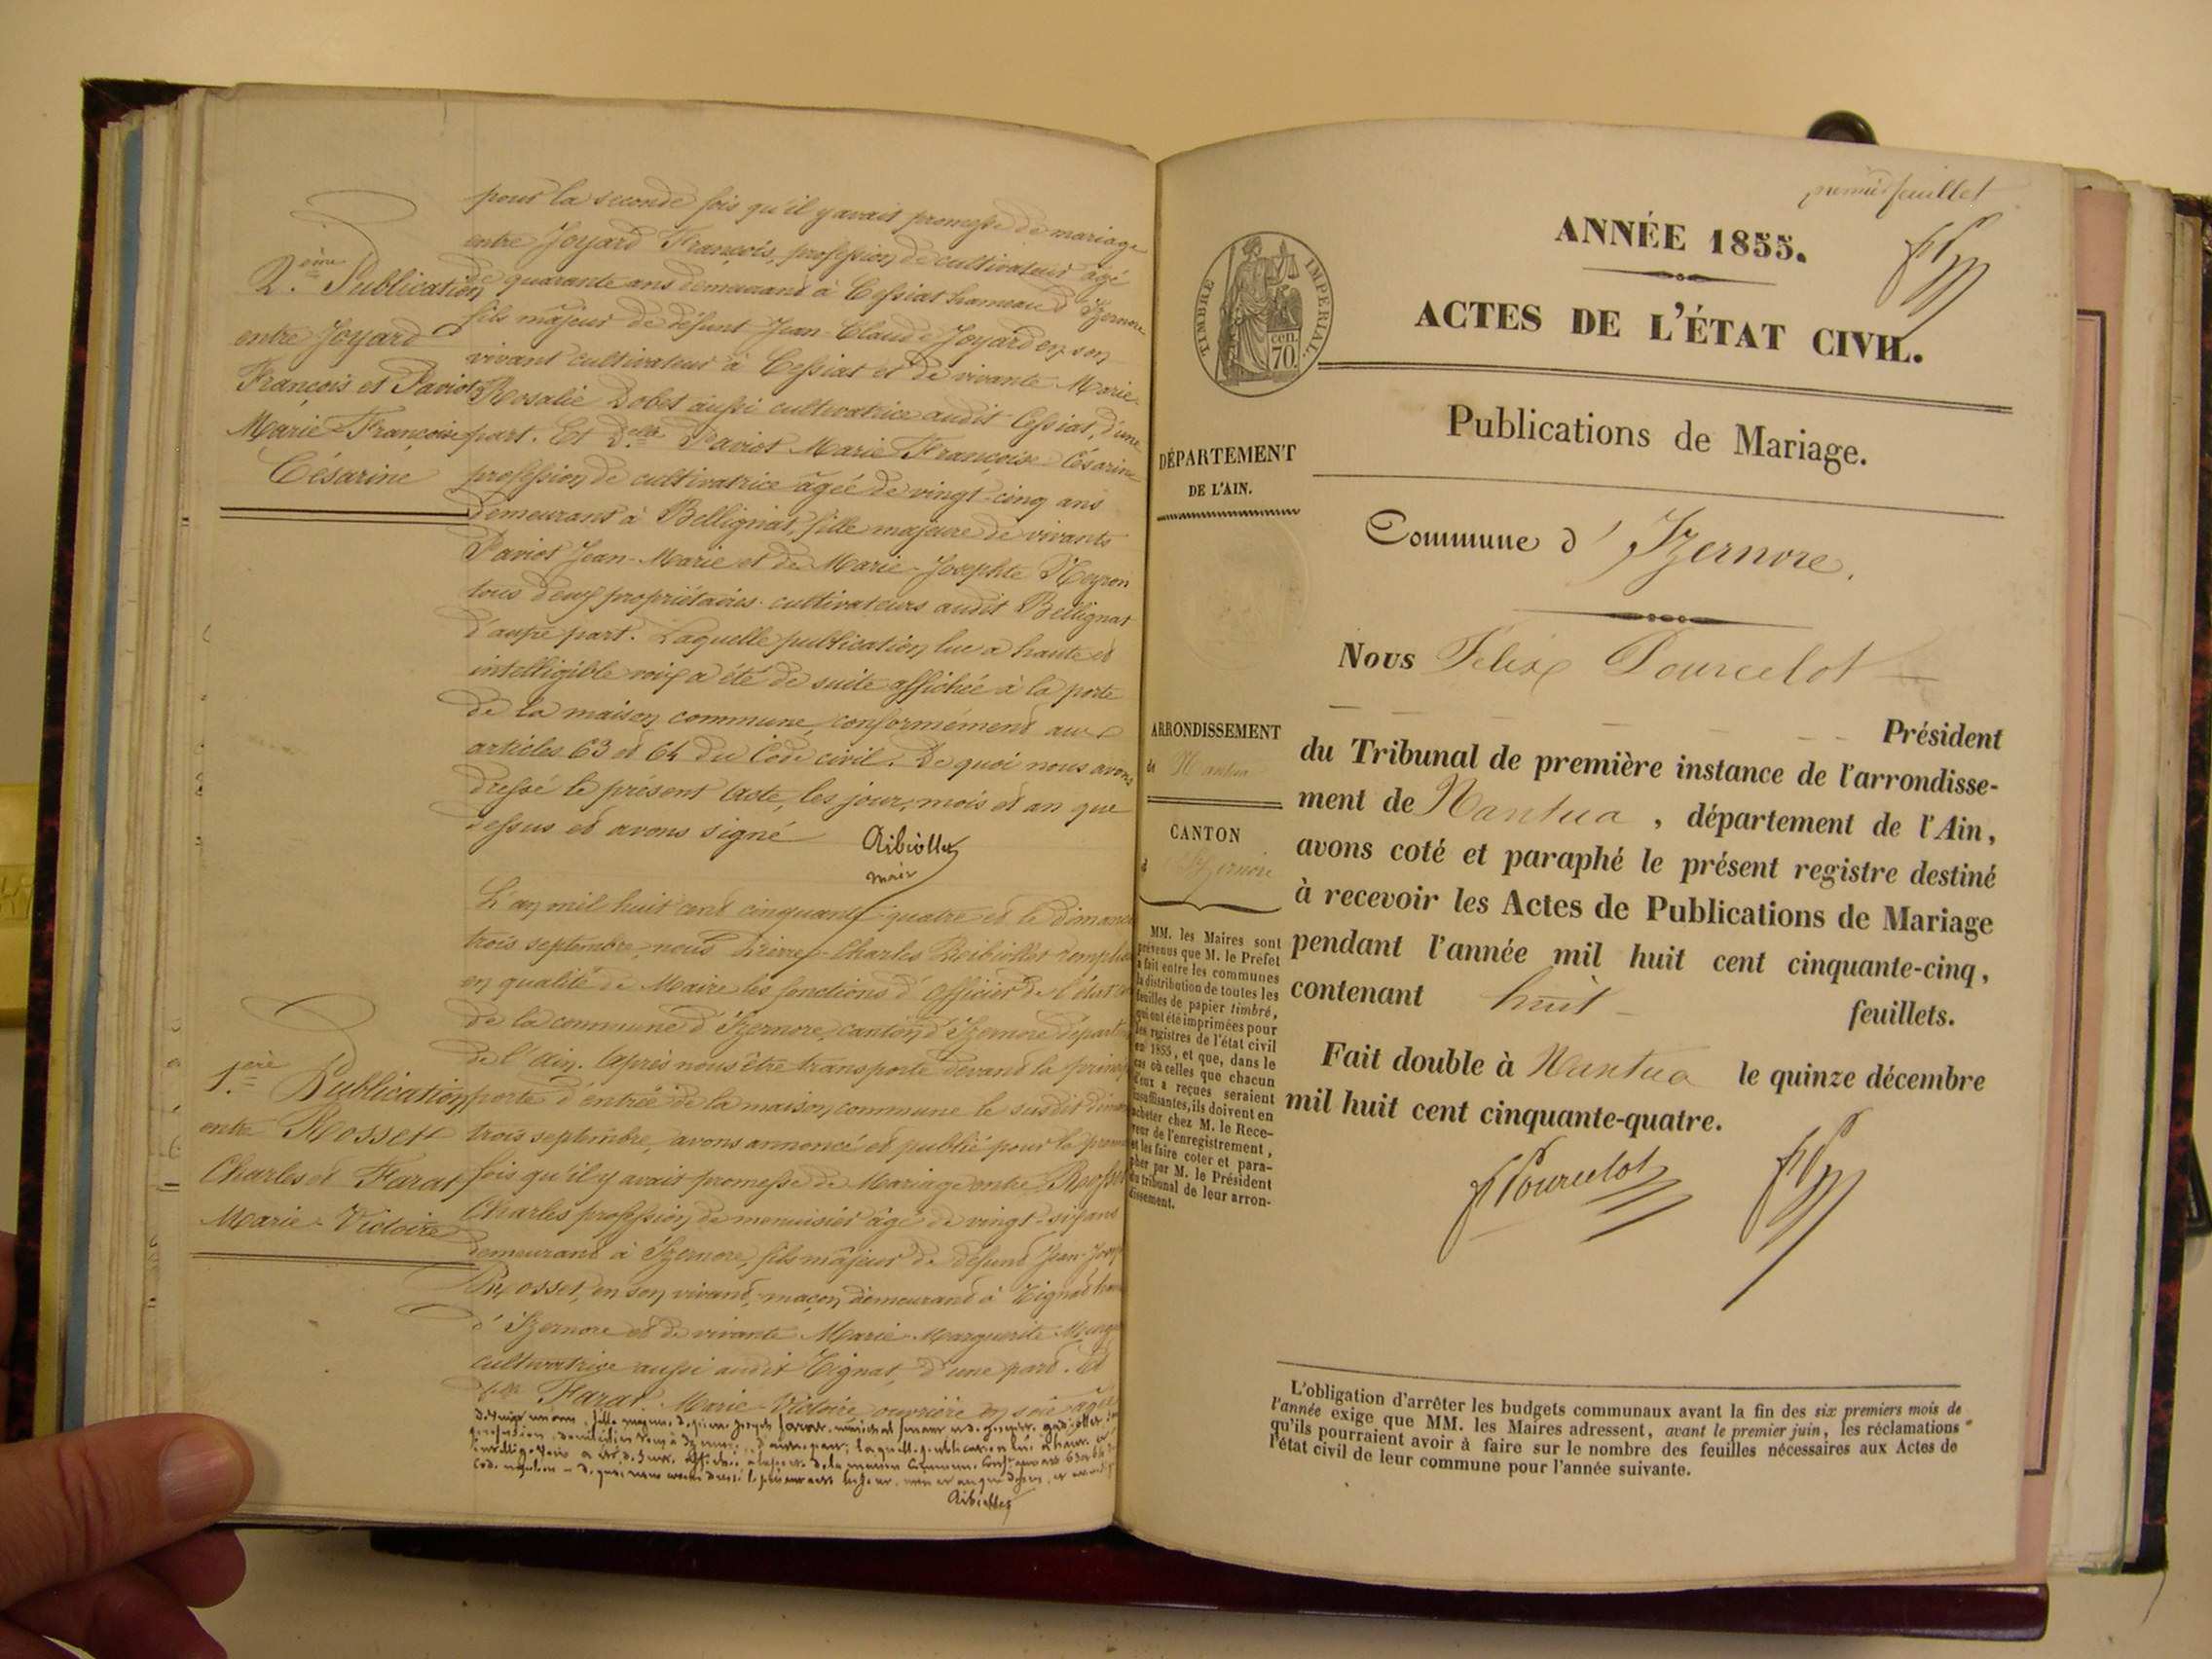 pour la seconde fois qu'il y avait promesse de mariage
entre Joyard François, profession de cultivateur âgé
de quarante ans demeurant à Cessiat hameau d'Izernore
fils majeur de défunt Jean-Claude Joyard en son
vivant cultivateur à Cessiat et de vivante Marie-
Rosalie Dobet aussi cultivatrice audit Cessiat, d'une
part. Et Delle Paviot Marie Françoise Césarine
profession de cultivatrice âgée de vingt-cinq ans
demeurant à Bellignat, fille majeure de vivants
Paviot Jean-Marie et de Marie-Josephte Neyron
tous deux propriétaires-cultivateurs audit Bellignat
d'autre part. Laquelle publication lue a haute et
intelligible voix a été de suite affichée à la porte
de la maison commune, conformément aux
articles 63 et 64 du Code civil. De quoi nous avons
dressé le présent acte, les jour, mois et an que
dessus et avons signé
maire
2.ème Publication
entre Joyard
François et Paviot
Marie-Françoise
Césarine
L'an mil huit cent cinquante quatre et le dimanche
trois septembre, nous Pierre-Charles Reibiollet
en qualité de Maire les fonctions d'officier de l'état
de la commune d'Izernore, canton d'Izernore départ
de l'Ain. Après nous être transporté devant la
porte d'entrée de la maison commune le susdit
trois septembre, avons annoncé et publié pour la
fois qu'il y avait promesse de Mariage entre Rosset
Charles profession de menuisier âgé de vingt-six ans
demeurant à Izernore, fils majeur de défunt Jean-
Rosset, en son vivant, maçon demeurant à Tignat
d'Izernore et de vivante Marie-Marguerite
cultivatrice aussi audit Tignat, d'une part. Et
Delle Farat Marie-Victoire ouvrière en soie âgée
1.ère Publication
entre Rosset
Charles et Farat
Marie-Victoire
premier feuillet
ANNÉE 1855.
ACTES DE L'ÉTAT CIVIL.
TIMBRE IMPERIAL.
70 cen.
Publications de Mariage.
DÉPARTEMENT
DE L'AIN.
Commune d'Izernore.
Nous Félix Pourcelot
Président
du Tribunal de première instance de l'arrondisse-
ment de Nantua, département de l'Ain,
avons coté et paraphé le présent registre destiné
à recevoir les Actes de Publications de Mariage
pendant l'année mil huit cent cinquante-cinq,
contenant huit feuillets.
Fait double à Nantua le quinze décembre
mil huit cent cinquante-quatre.
FPourcelot
ARRONDISSEMENT
de Nantua
CANTON
d'Izernore
MM. les Maires sont
prévenus que M. le Préfet
a fait entre les communes
la distribution de toutes les
feuilles de papier timbré,
qui ont été imprimées pour
les registres de l'état civil
en 1855, et que, dans le
cas où celles que chacun
d'eux a reçues seraient
insuffisantes, ils doivent en
acheter chez M. le Rece-
veur de l'enregistrement,
et les faire coter et para-
pher par M. le Président
du tribunal de leur arron-
dissement.
L'obligation d'arrêter les budgets communaux avant la fin des six premiers mois de
l'année exige que MM. les Maires adressent, avant le premier juin, les réclamations
qu'ils pourraient avoir à faire sur le nombre des feuilles nécessaires aux Actes de
l'état civil de leur commune pour l'année suivante.